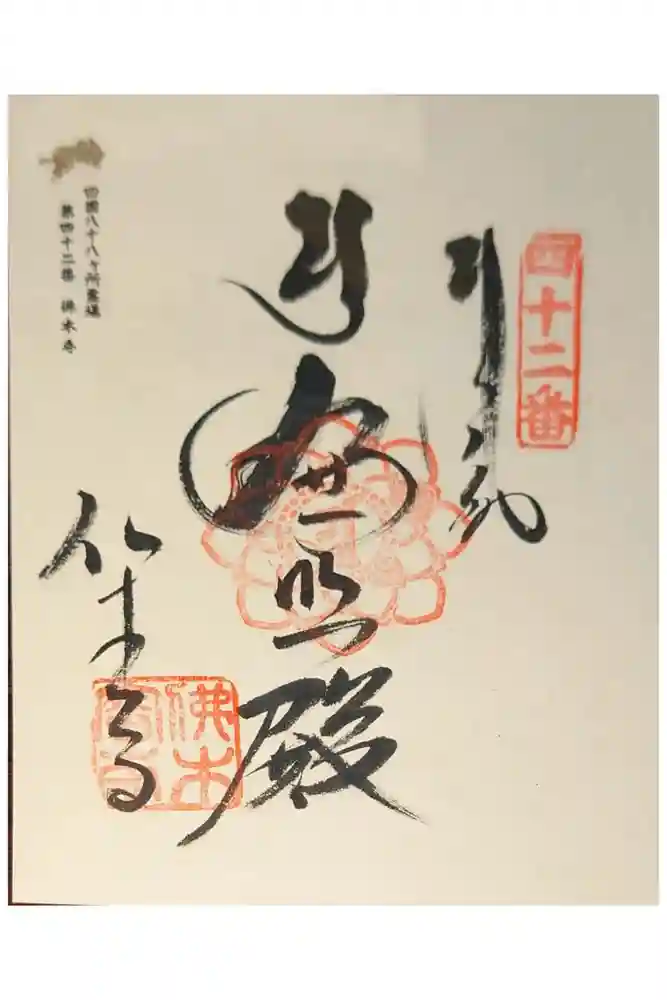 四十二番
奉納
殿
仏木寺
佛木
四國八十八ヶ所霊場
第四十二番 佛木寺